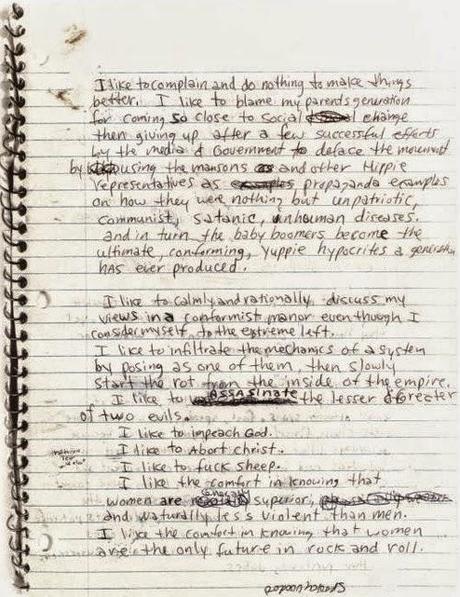 I like to complain and do nothing to make things
better. I like to blame my parents generation
for coming so close to social change
then giving up after a few successful efforts
by the media & Government to deface the movement
by using the mansons and other Hippie
representatives as propaganda examples
on how they were nothing but unpatriotic,
communist, satanic, unhuman diseases.
and in turn the baby boomers become the
ultimate, conforming, yuppie hypocrites a generation
has ever produced.
I like to calmly and rationally discuss my
views in a conformist manor even though I
consider myself to the extreme left.
I like to infiltrate the mechanics of a system
by posing as one of them, then slowly
start the rot from the inside of the empire.
I like to assasinate the lesser & Greater
of two evils.
I like to impeach God.
I like to Abort christ.
I like to fuck sheep.
I like the comfort in knowing that
women are superior,
and naturally less violent than men.
I like the comfort in knowing that women
are the only future in rock and roll.